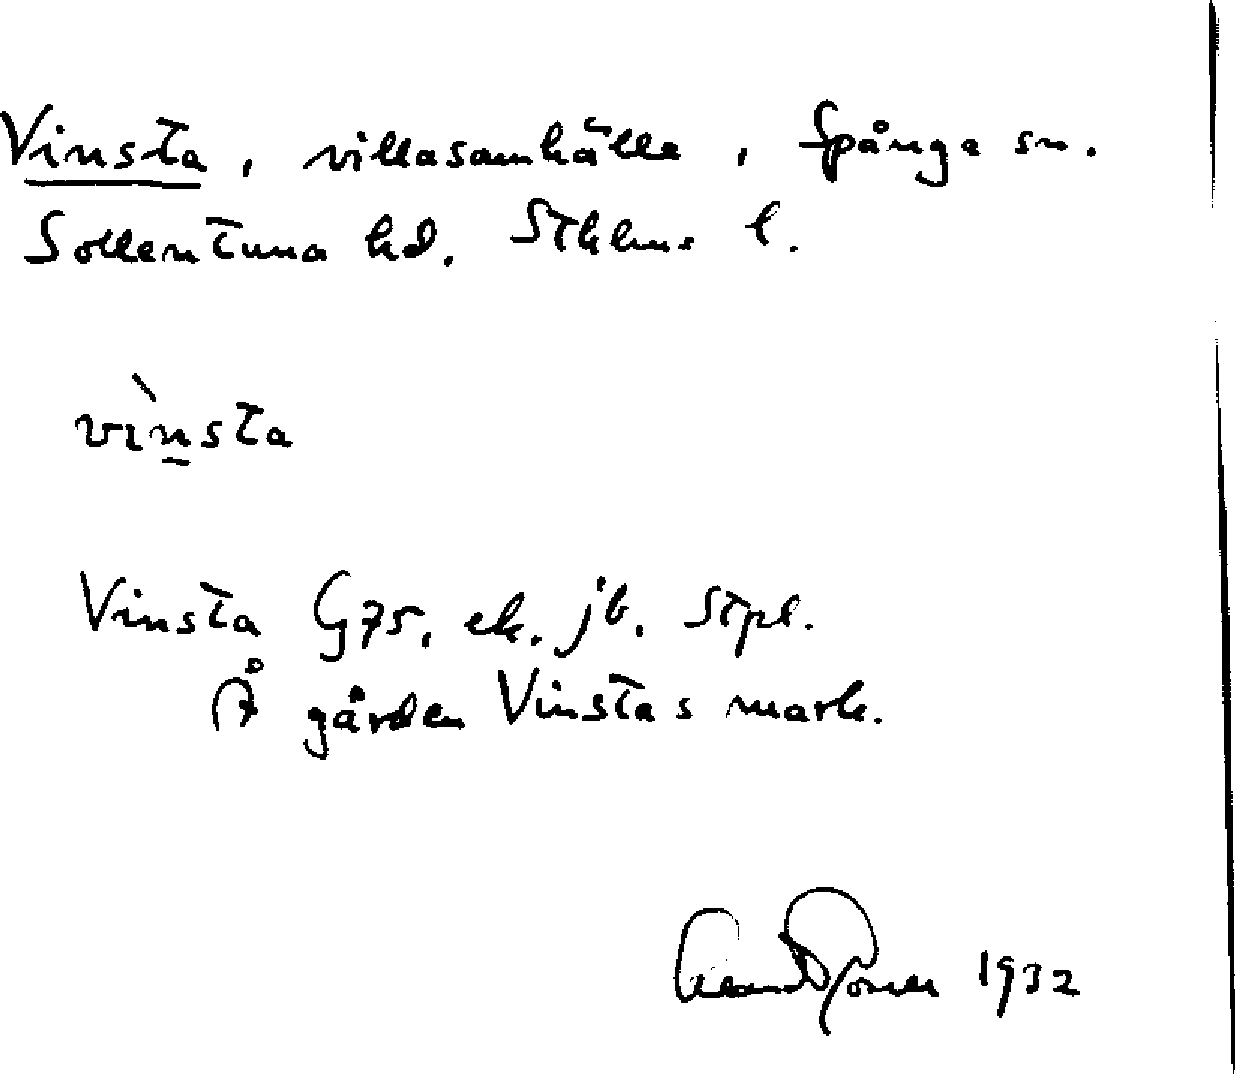 Vinsta, villasamhälle, Spånga sn.
Sollentuna hd. Sthlms l.
vìnsta
Vinsta G75, ek. jb. Stpl.
Å gården Vinstas mark.
1932